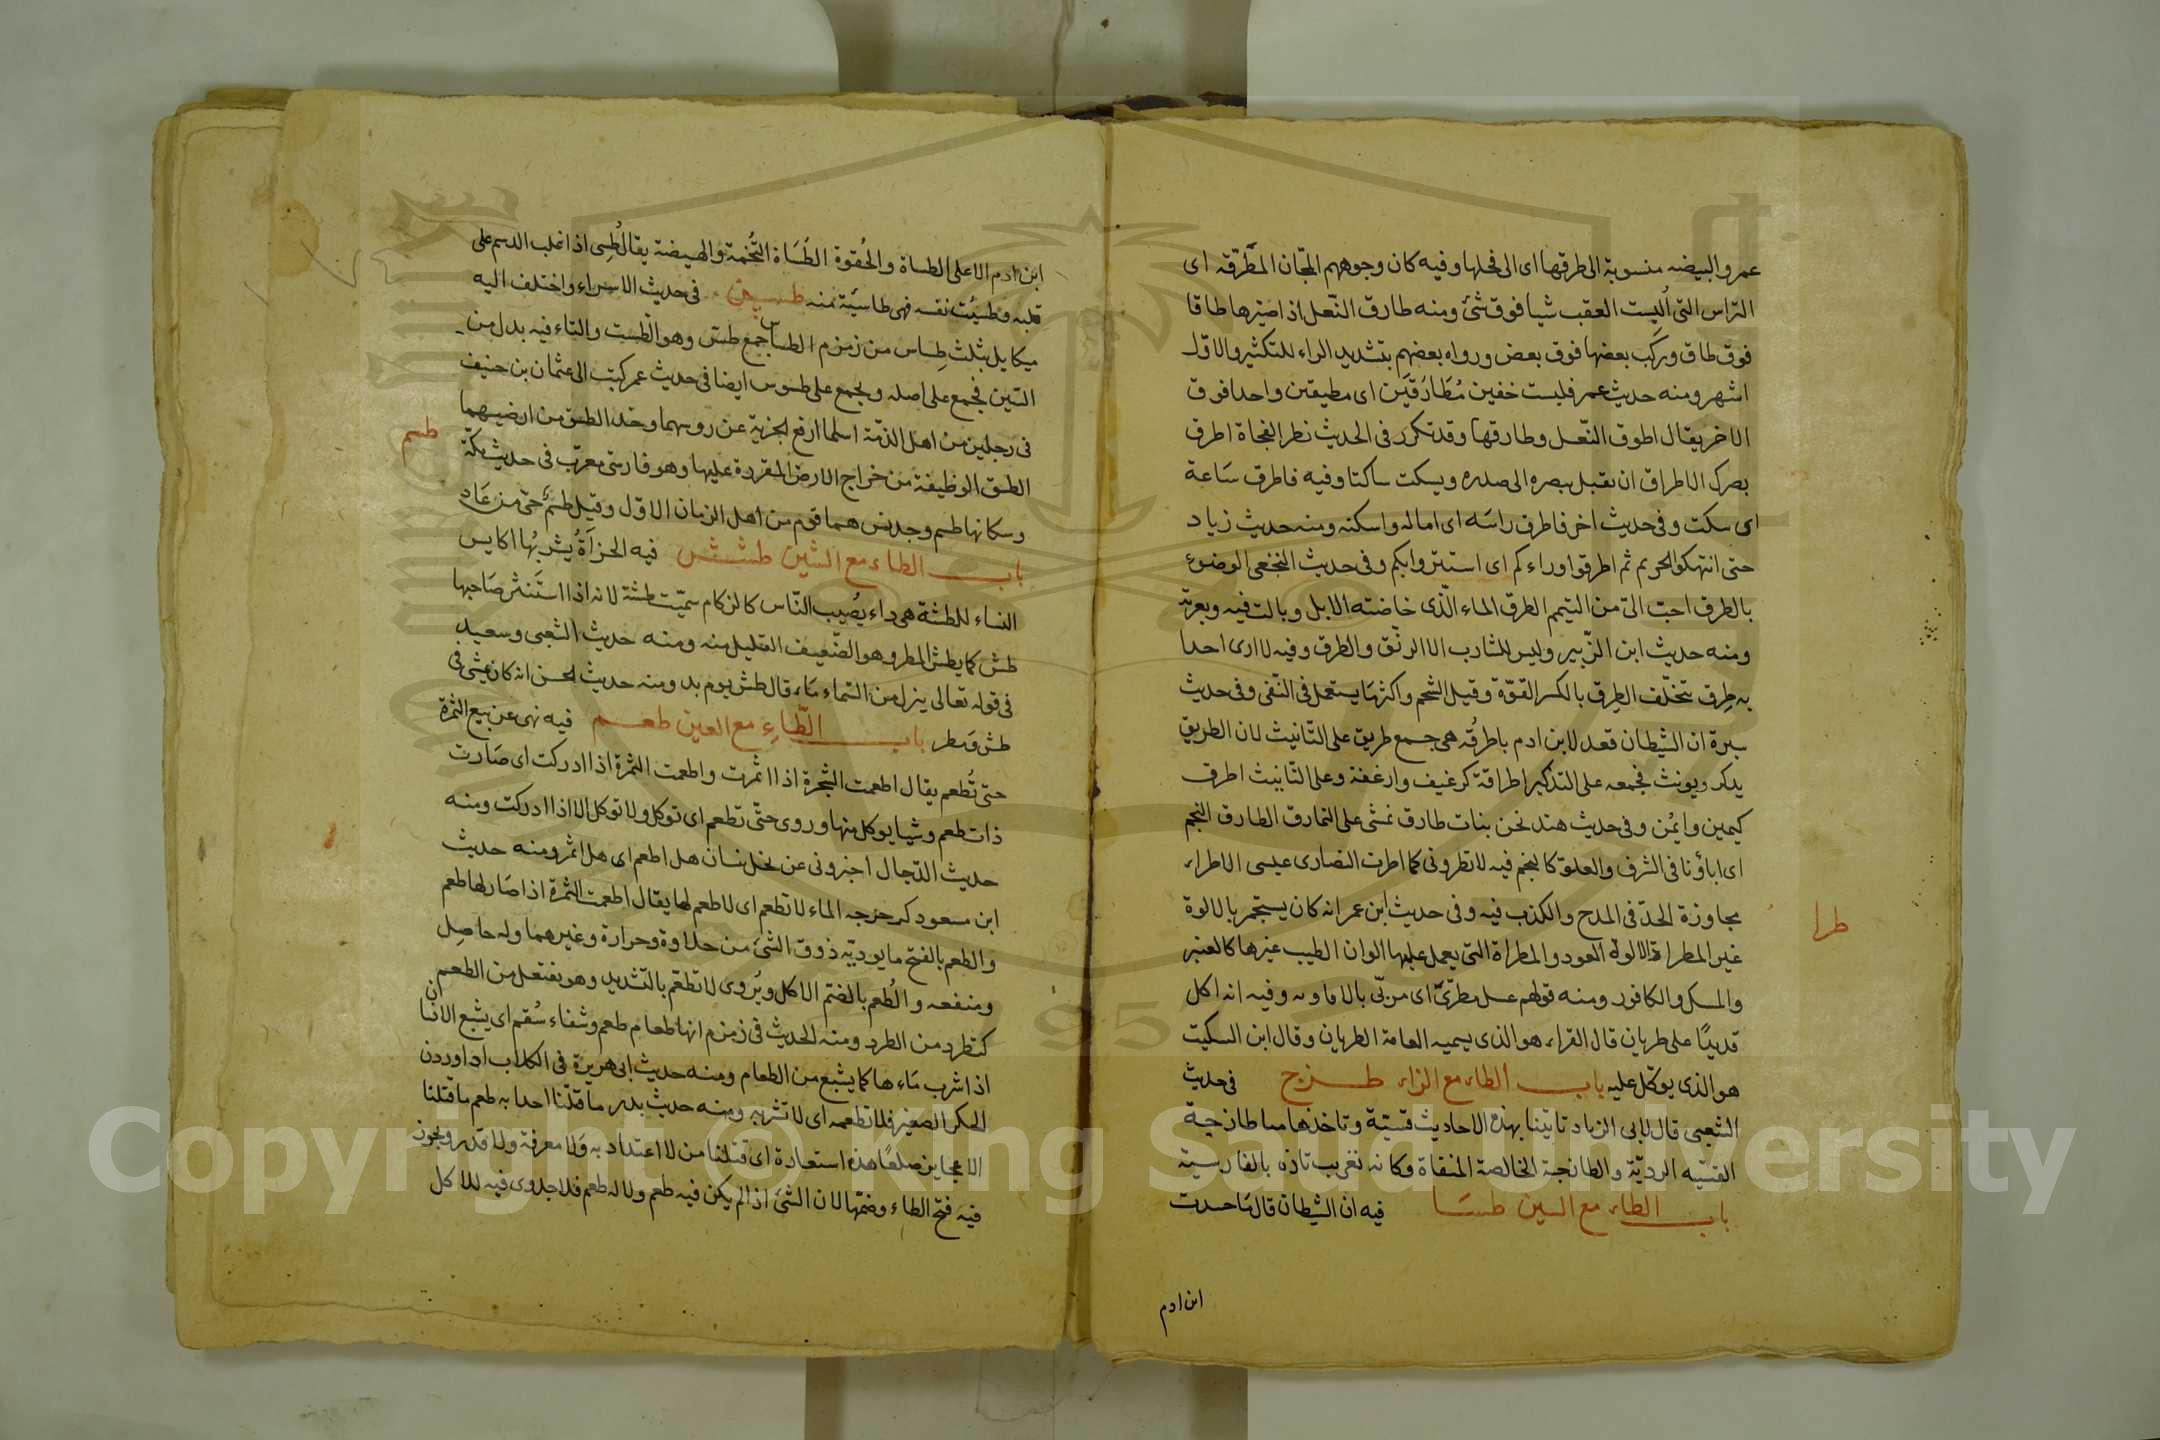 عمرو البيضه منسوبة الى طرقها اى الى فحلها وفيه كان وجوههم المجان المطرقة اى
التراس التى اُلبست العقب شيا فوق شئ ومنه طارق النّعل اذا صيرها طاقا
فوق طاق وركب بعضها فوق بعض ورواه بعضهم بتشديد الراء للتكثير والاوّل
اشهر ومنه حديث عمر فلبست خفين مُطَارَقَيَن اى مطبقين واحدا فوق
الاخر يقال اطرق النّعل وطارقها وقد تكرر فى الحديث نظر الفجاة اطرق
بصرك الاطراق ان يقبل ببصره الى صدره ويسكت ساكتا وفيه فاطرق سَاعة
اى سكت وفى حديث اخر فاطرق راسَه اى اماله واسكنه ومنه حديث زياد
حتى انتهكوا الحريم ثم اطرقوا وراءكم اى استتروا بكم وفى حديث النخعى الوضوء
بالطرق احبّ الىّ من التيمم الطرق الماء الّذى خاضته الابل وبالت فيه وبعرت
ومنه حديث ابن الزّبير وليس للشارب الا الرنْق والطرق وفيه لا ارى احدا
به طِرق تتخلّف الطِرق بالكسر القوّة وقيل الشحم واكثر ما يستعمل فى النّفى وفى حديث
سبرة ان الشيطان قعد لابن ادم باطرُقه هى جمع طريق على التّانيث لان الطريق
يذكر ويونث فجمعه على التذكير اطرقة كرغيف وارغفة وعلى التّانيث اطرق
كيمين وايمُن وفى حديث هند نحن بنات طارق نمشى على النمارق الطارق النجم
اى اباؤنا فى الشرف والعلوّ كالنجم فيه لا تطرونى كما اطرت النصارى عيسى الاطراء
طرا
مجاوزة الحدّ فى المدح والكذب فيه وفى حديث ابن عمر انه كان يستجمر بالالوة
غير المطراة الالوة العود والمطراة التى يعمل عليها الوان الطيب غيرها كالعنبر
والمسك والكافور ومنه قولهم عسل مطرّىً اى مربّى بالافاويه وفيه انه اكل
قديدًا على طريان قال الفراء هو الذى يسميه العامة الطريان وقال ابن السكيت
هو الذى يوكل عليه باب الطاء مع الزاء طزج فى حديث
الشعبى قال لابى الزناد تاتينا بهذه الاحاديث قسيّة وتاخذها منا طازجة
القسّيه الرديّة والطازجة الخالصة المنقاة وكانه تعريب تازه بالفارسية
باب الطاء مع السين طسَا فيه ان الشيطان قال مَا حسدت
ابن ادم
ابن ادم الا على الطساة والحُقوة الطُسَاة التُّخمة والهيضة يقال طُسِى اذا غلب الدسم على
قلبه وطسِئت نفسه فهى طاسِئة منه طسس فى حديث الاسراء واختلف اليه
ميكايل بثلث طِساس من زمزم الطساس جمع طسّ وهو الطست والتاء فيه بدل من
السّين فجمع على اصله ويجمع على طسوس ايضا فى حديث عمر كتب الى عثمان بن حنيف
فى رجلين من اهل الذمّة اسلما ارفع الجزية عن روسهما وخذ الطسق من ارضيهما
طسم
الطسق الوظيفة من خراج الارض المقررة عليها وهو فارسّى معرّب فى حديث مكّة
وسكانها طسم وجديس هما قوم من اهل الزمان الاوّل وقيل طسمٌ حىّ من عَاد
باب الطاء مع الشين طشش فيه الحزاَةُ يشربُها اكايس
النساء للطشّة هى داء يصُيب النّاس كالزكام سمّيت طشّة لانه اذا استَنثر صَاحبها
طشّ كما يطشّ المطر وهو الضّعيف القليل منه ومنه حديث الشعبى وسعيد
فى قوله تعالى ينزل من السّماء مَاء قال طش يوم بدر ومنه حديث الحسن انه كان يمشى فى
طش ومطر باب الطّاءِ مع العين طعم فيه نهى عن بيع الثمرة
حتى تُطعم يقال اطعمت الشجرة اذا اثمرت واطعمت الثمرة اذا ادركت اى صَارت
ذات طعم وشيا يوكل منها وروى حتّى تطعم اى توكل ولا توكل الا اذا ادركت ومنه
حديث الدّجال اخبرونى عن نخل بيسان هل اطعم اى هل اثمر ومنه حديث
ابن مسعود كرجرجه الماء لا تطعم اى لا طعم لها يقال اطعمت الثمرة اذا صَار لها طعم
والطعم بالفتح ما يوديّه ذوق الشئ من حلاوة وحرارة وغيرهما وله حاصِل
ومنفعه والطُعم بالضمّ الاكل ويُروى لا تطّعم بالتّشديد وهو يفتعل من الطعم
كتطرد من الطرد ومنه الحديث فى زمزم انها طعام طعم وشفاء سُقم اى يشبع الانسان
اذا شرب مَاءها كما يشبع من الطعام ومنه حديث ابى هريرة فى الكلاب اذا وردن
الحكر الصغير فلا تطعمه اى لا تشربه ومنه حديث بدر ما قتلنا احدا به طعم ما قتلنا
الا عجايز صلعًا هذه استعارة اى قتلنا من لا اعتداد به وَلا معرفة ولا قدر ويجوز
فيه فتح الطاء وضمّها لان الشئ اذا لم يكن فيه طعم ولا له طعم فلا جدوى فيه للاكل
Copyright © King Saud University